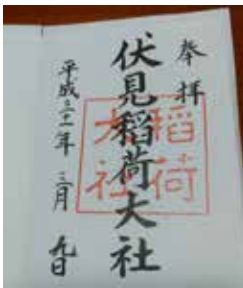 奉拝
伏見稲荷大社
稲荷
大社
平成三十一年三月九日